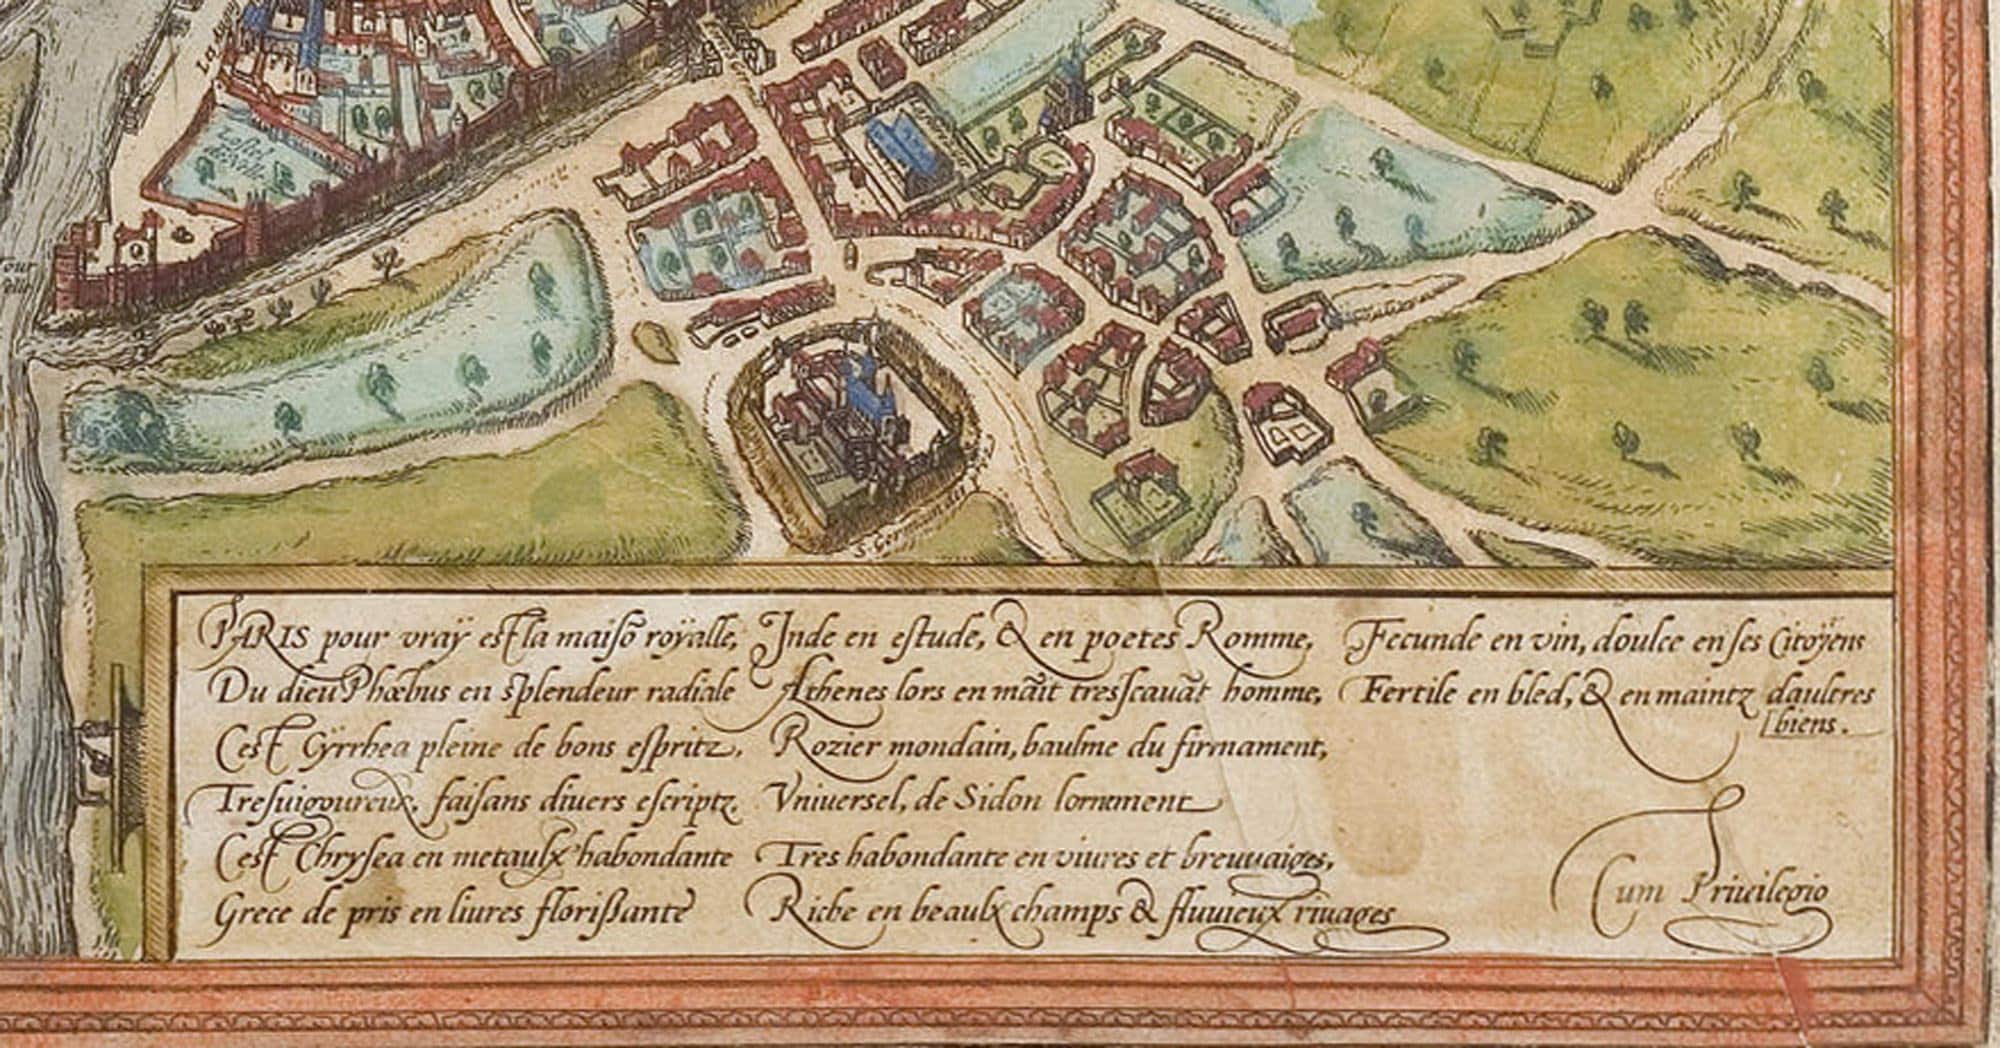 PARIS pour vraÿ est la maisō roÿalle,
Du dieu Phœbus en splendeur radiale
C'est Cÿrrhea pleine de bons espritz,
Tresuigoureux, faisans diuers escriptz.
C'est Chrysea en metaulx habondante
Grece de pris en liures florißante
Inde en estude, & en poetes Romme,
Athenes lors en maīt tresscauāt homme,
Rozier mondain, baulme du firmament,
Vniuersel, de Sidon lornement
Tres habondante en viures et breuuaiges,
Riche en beaulx champs & fluuieux riuages
Fecunde en vin, doulce en ses Citoÿens
Fertile en bled, & en maintz daultres
biens.
Cum Priuilegio
S. Germain